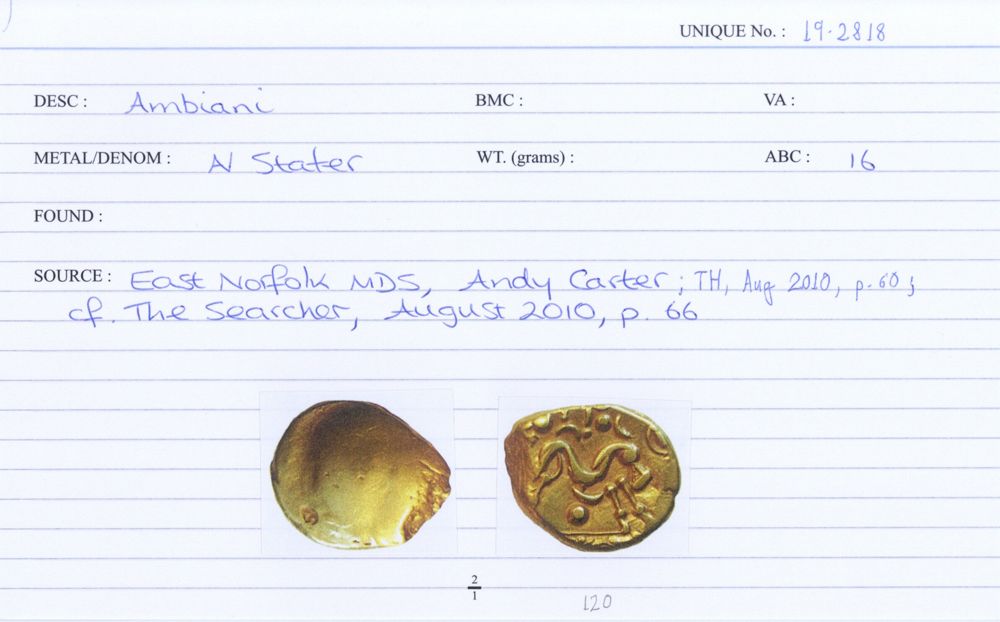 UNIQUE No. : 19·2818
DESC : Ambiani BMC : VA :
METAL/DENOM : AV Stater WT. (grams) : ABC : 16
FOUND :
SOURCE : East Norfolk MDS, Andy Carter ; TH, Aug 2010, p. 60 ;
cf. The Searcher, August 2010, p. 66
2
1
120